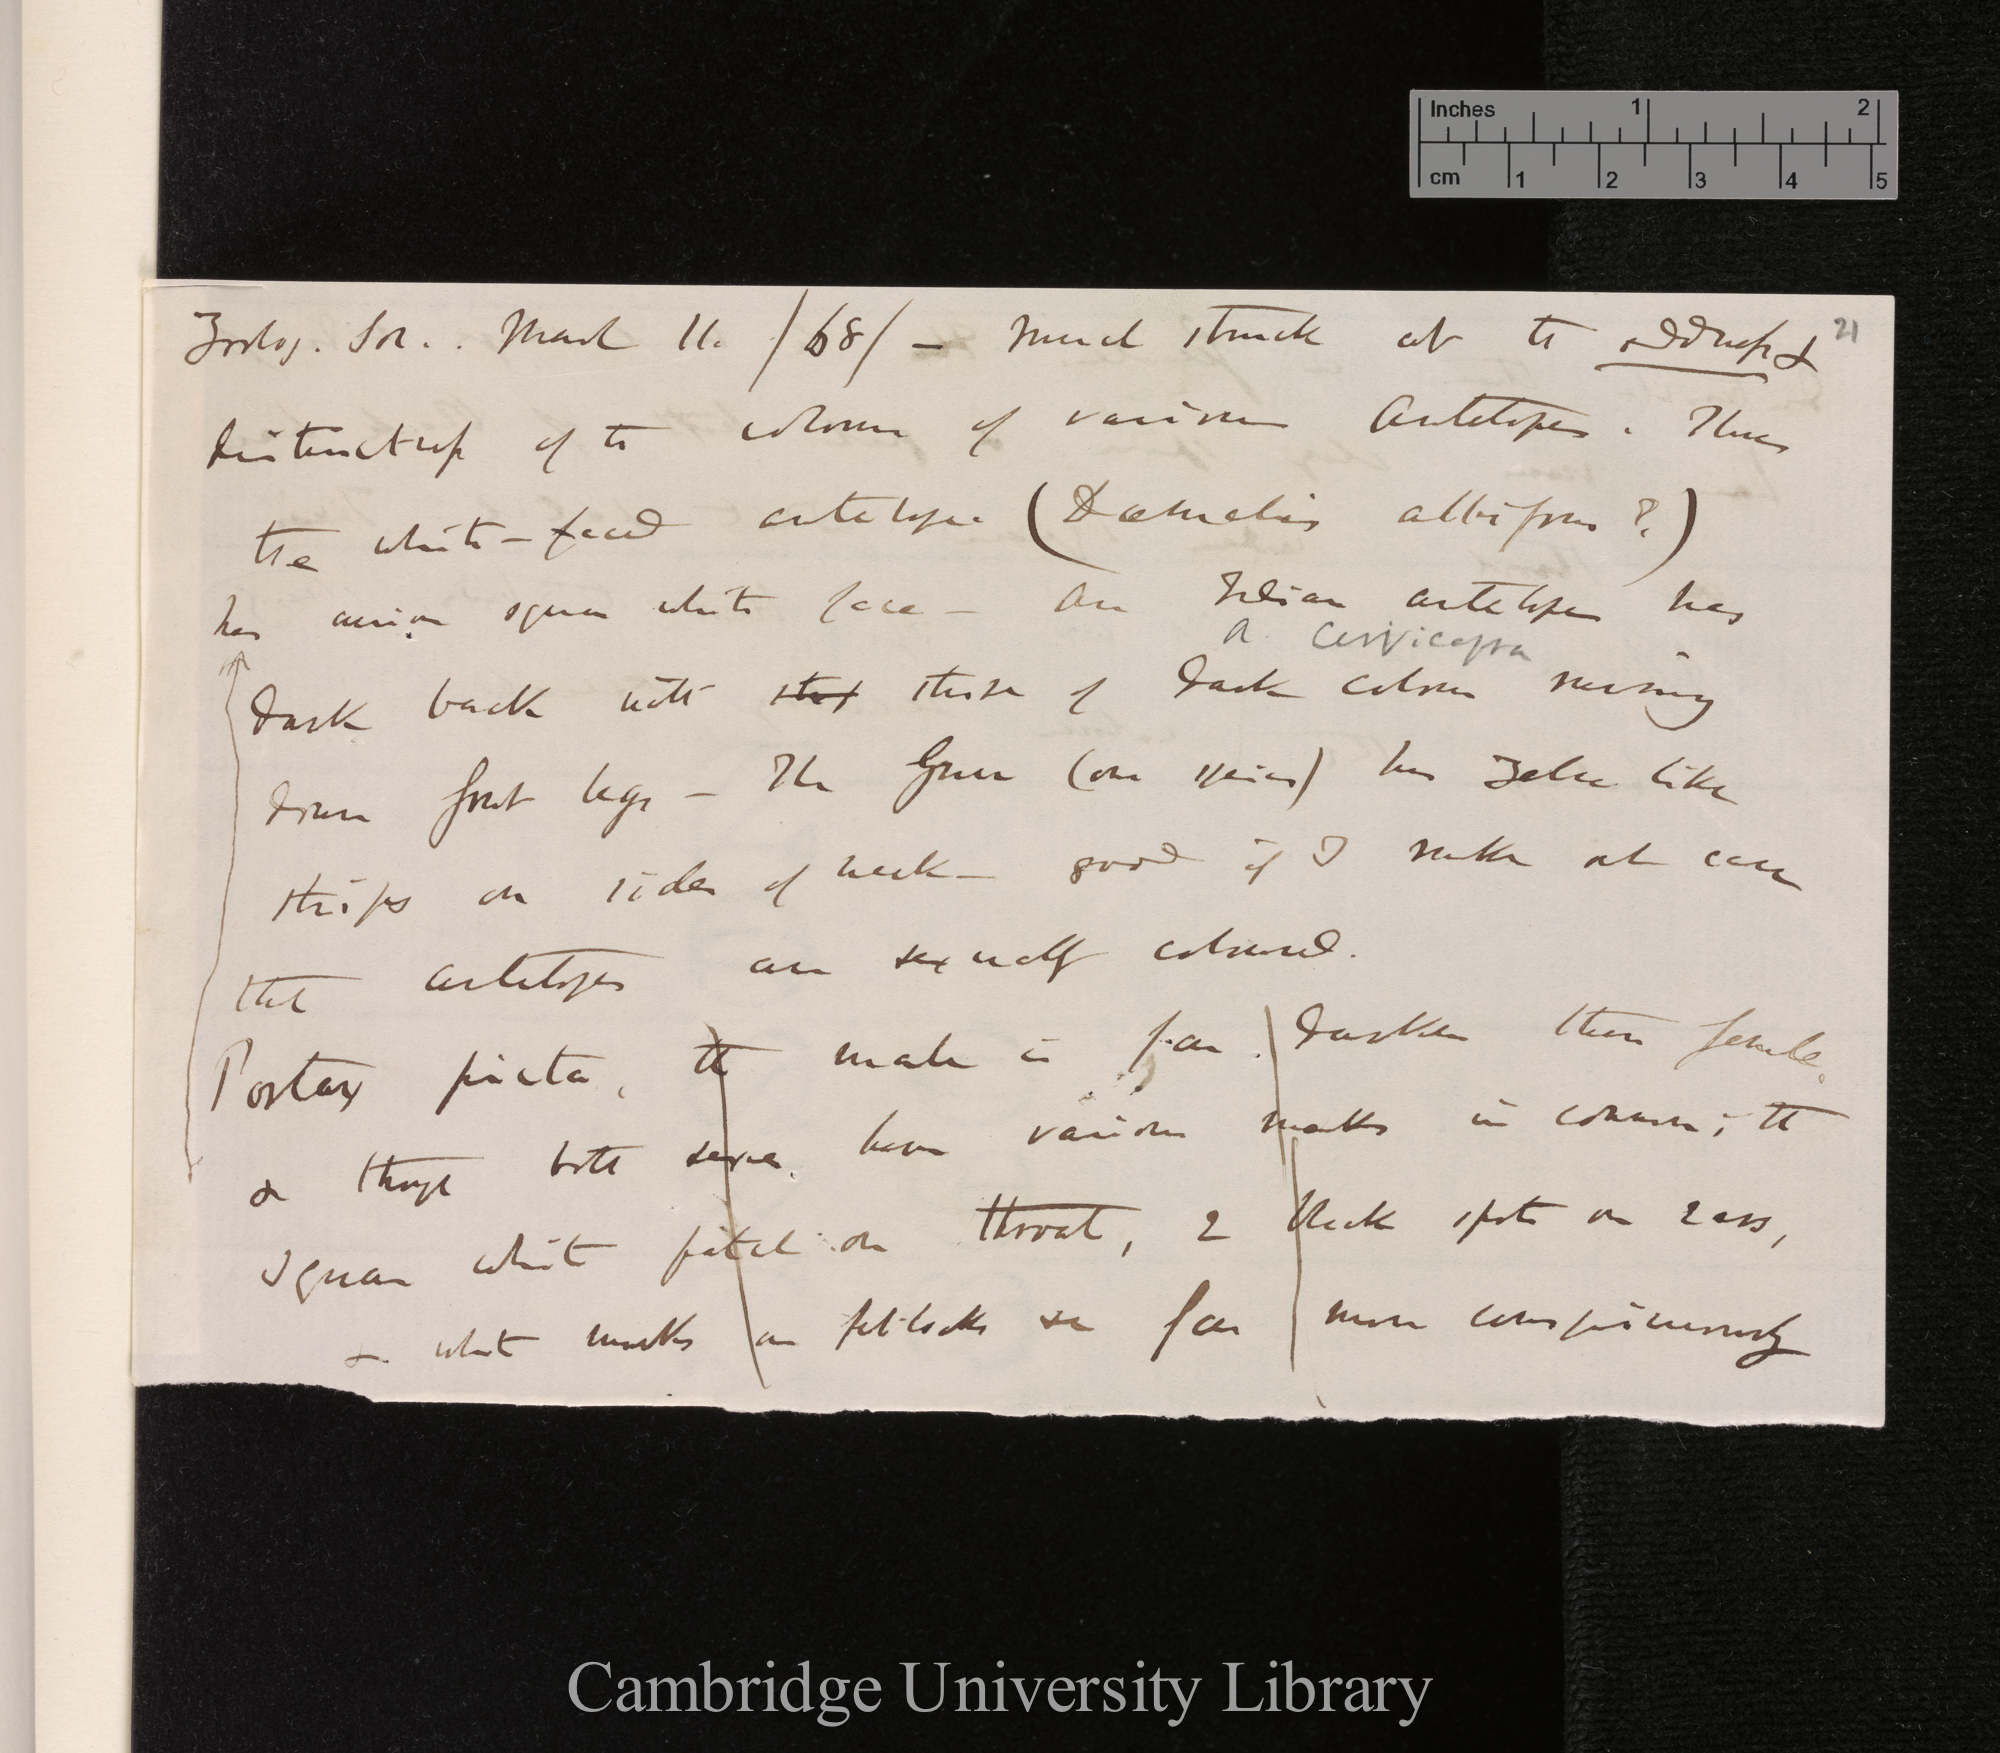 Inches 1 2
cm 1 2 3 4 5
21
Zoolog. Soc. March 11. /68/ — Much struck at the oddness &
distinctness of the colours of various Antelopes. Thus
the white-faced antelope (Damalis albifrons?)
has curious square white face — An Indian antelope has
A. Cervicapra
dark back with stripe of dark colour running
down front legs — The Gnu (one species) has Zebra like
stripes on sides of neck — good if I make out case
that antelopes are sexually coloured.
Portax picta, the male is far darker than female,
& though both sexes have various marks in common; the
square white patch on throat, 2 black spots on ears,
& white marks on fetlocks are far more conspicuously
Cambridge University Library